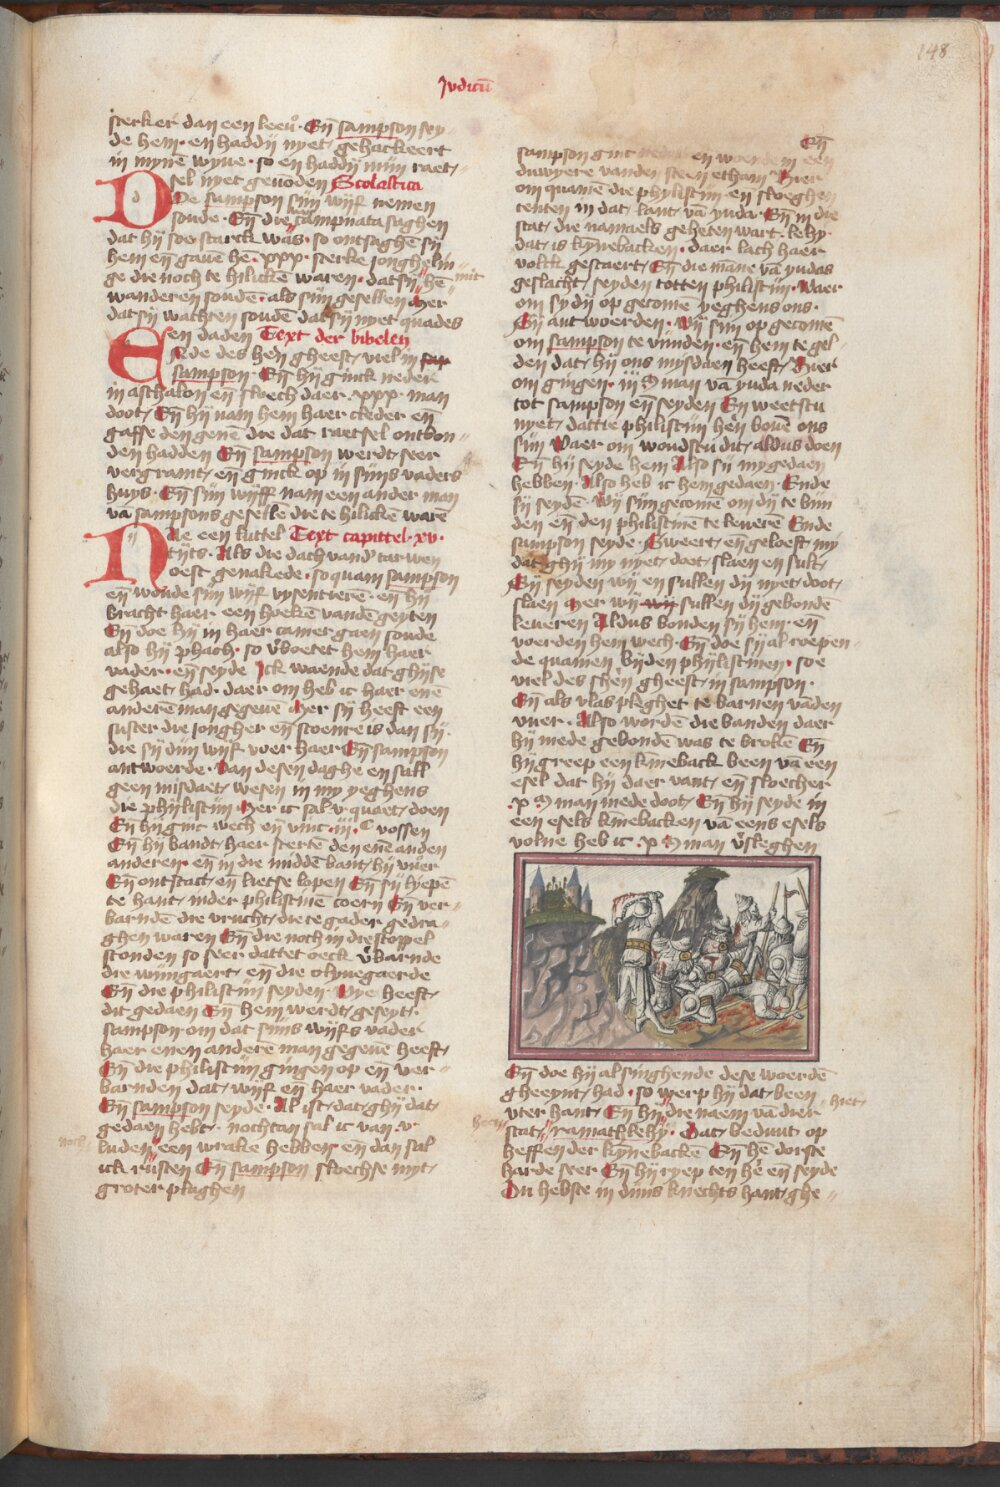 148
Judicū
sterker dan een leeu. En̄ sampson sey-
de hem. en haddij nyet gehackeert
in mynē wyue. so en haddij mijn raet-
sel nyet geuōden Scolastica
Doe sampson sijn wijf nemen
soude. En̄ die sampnata saghen
dat hij soe starck was. so ontsaghē sij
hem en̄ gauē hē. xxx. sterke jonghelin-
ge die noch te hilickē waren. dat sij hē mit
wanderen soudē. als sijn gesellen Mer
dat sij wachten soudē dat sij nyet quades
en daden Text der bibelen
Ende des herē gheest viel in
sampson. En̄ hij ginck neder
in aschalon en̄ sloech daer. xxx. man
doot. En̄ hij nam hem haer cleder en̄
gaffe den genē die dat raetsel ontbon-
den hadden En̄ sampson werdt seer
vergramt. en̄ ginck op in sijns vaders
huys. En̄ sijn wijff nam een ander man
vā sampsons geselle die te hilickē warē
Nae een luttel Text capittel. xv.
tijts. Als die dach vand tarwen
oest genakede. so quam sampson
en̄ woude sijn wijf vysentierē. en̄ hij
bracht haer een hoekē vandē geyten
En̄ doe hij in haer camer gaen soude
also hij plach. so v̄boetet hem haer
vader. en̄ seyde Ick waende dat ghijse
gehaet had. daer om heb ic haer enē
anderē man gegeuē Mer sij heeft een
suster die jongher en̄ scoenre is dan sij.
die sij dijn wijf voer haer En̄ sampson
antwoerde. Van desen daghe en sall
geen misdaet wesen in my yeghens
die phijlistijn. Mer ic sal v quaet doen
En̄ hij ginc wech en̄ vinc. iij. C vossen
En̄ hij bandt haer stertē den enē anden
anderen. en̄ in die middē bant hij vuer
En̄ ontstact en̄ lietse lopen En̄ sij lyepē
te hant inder philistinē coern En̄ ver-
barndē die vrucht die te gader gedra-
ghen waren En̄ die noch in die stoppel
stonden so seer dattet oeck v̄barnde
die wijngaert en̄ die olyuegaerde
En̄ die philistijn seyden. Wye heeft
dit gedaen En̄ hem werdt geseyt.
sampson om dat sijns wijfs vader
haer enen anderē man gegeuē heeft
En̄ die philistijn gingen op en̄ ver-
barnden dat wijf en̄ haer vader.
En̄ sampson seyde. Al ist dat ghij dat
gedaen hebt. nochtan sal ic van v
luden een wrake hebben en̄ dan sal
ick rusten En̄ sampson sloechse myt
groter plaghen
En̄
sampson ginc en woende in een
duwyere vanden steen etham Hier
om quamē die phylistijn en̄ sloeghen
tenten in dat lant vā yuda. En̄ in die
stat die namaels geheten wart. lehy.
dat is kynebacken. daer lach haer
volck gescaert En̄ die māne vā yudas
geslacht seyden totten philistijn. Waer
om sy dij op gecomē yeghens ons.
Sij antwoerden. Wij sijn op gecomē
om sampson te vijnden. en̄ hem te gel-
den dat hij ons mysdaen heeft Hier
om gingen. iij M man vā yuda neder
tot sampson en̄ seyden En weetstu
nyet dattie philistijn hen bouē ons
sijn Waer om woudstu dit aldus doen
En̄ hij seyde hem Also sij my gedaen
hebben. Also heb ic hem gedaen. Ende
sij seydē. Wij sijn gecomē om dij te bijn
den en̄ den philistinē te leuerē Ende
sampson seyde. Sweert en̄ geloeft my
dat ghij my nyet doet slaen en sult
Sij seyden wij en sullen dij nyet doot
slaen Mer wij wij sullen dij gebondē
leueren Aldus bonden sij hem. en̄
voerden hem wech. En̄ doe sij al roepen-
de quamen bijden phijlistinen. soe
viel des heren gheest in sampson.
En̄ als vlas pleghet te barnen vāden
vuer. Also wordē die banden daer
hij mede gebondē was te brokē En̄
hij greep een kineback been vā een
esel dat hij daer vant en̄ sloecher
.x M man mede doot. En̄ hij seyde in
een esels kinebacken vā eens esels
volne heb ic. x M man v̄sleghen
En̄ doe hij al singhende dese woerdē
gheeynt had. so werp hij dat been hiet
vter hant En̄ hij die naem vā dier
stat ramathlehy. Dat beduut op
heffen der kynebackē En̄ hē dorste
harde seer En̄ hij ryep ten hē en̄ seyde
Du hebste in dijns knechts hant ghe-